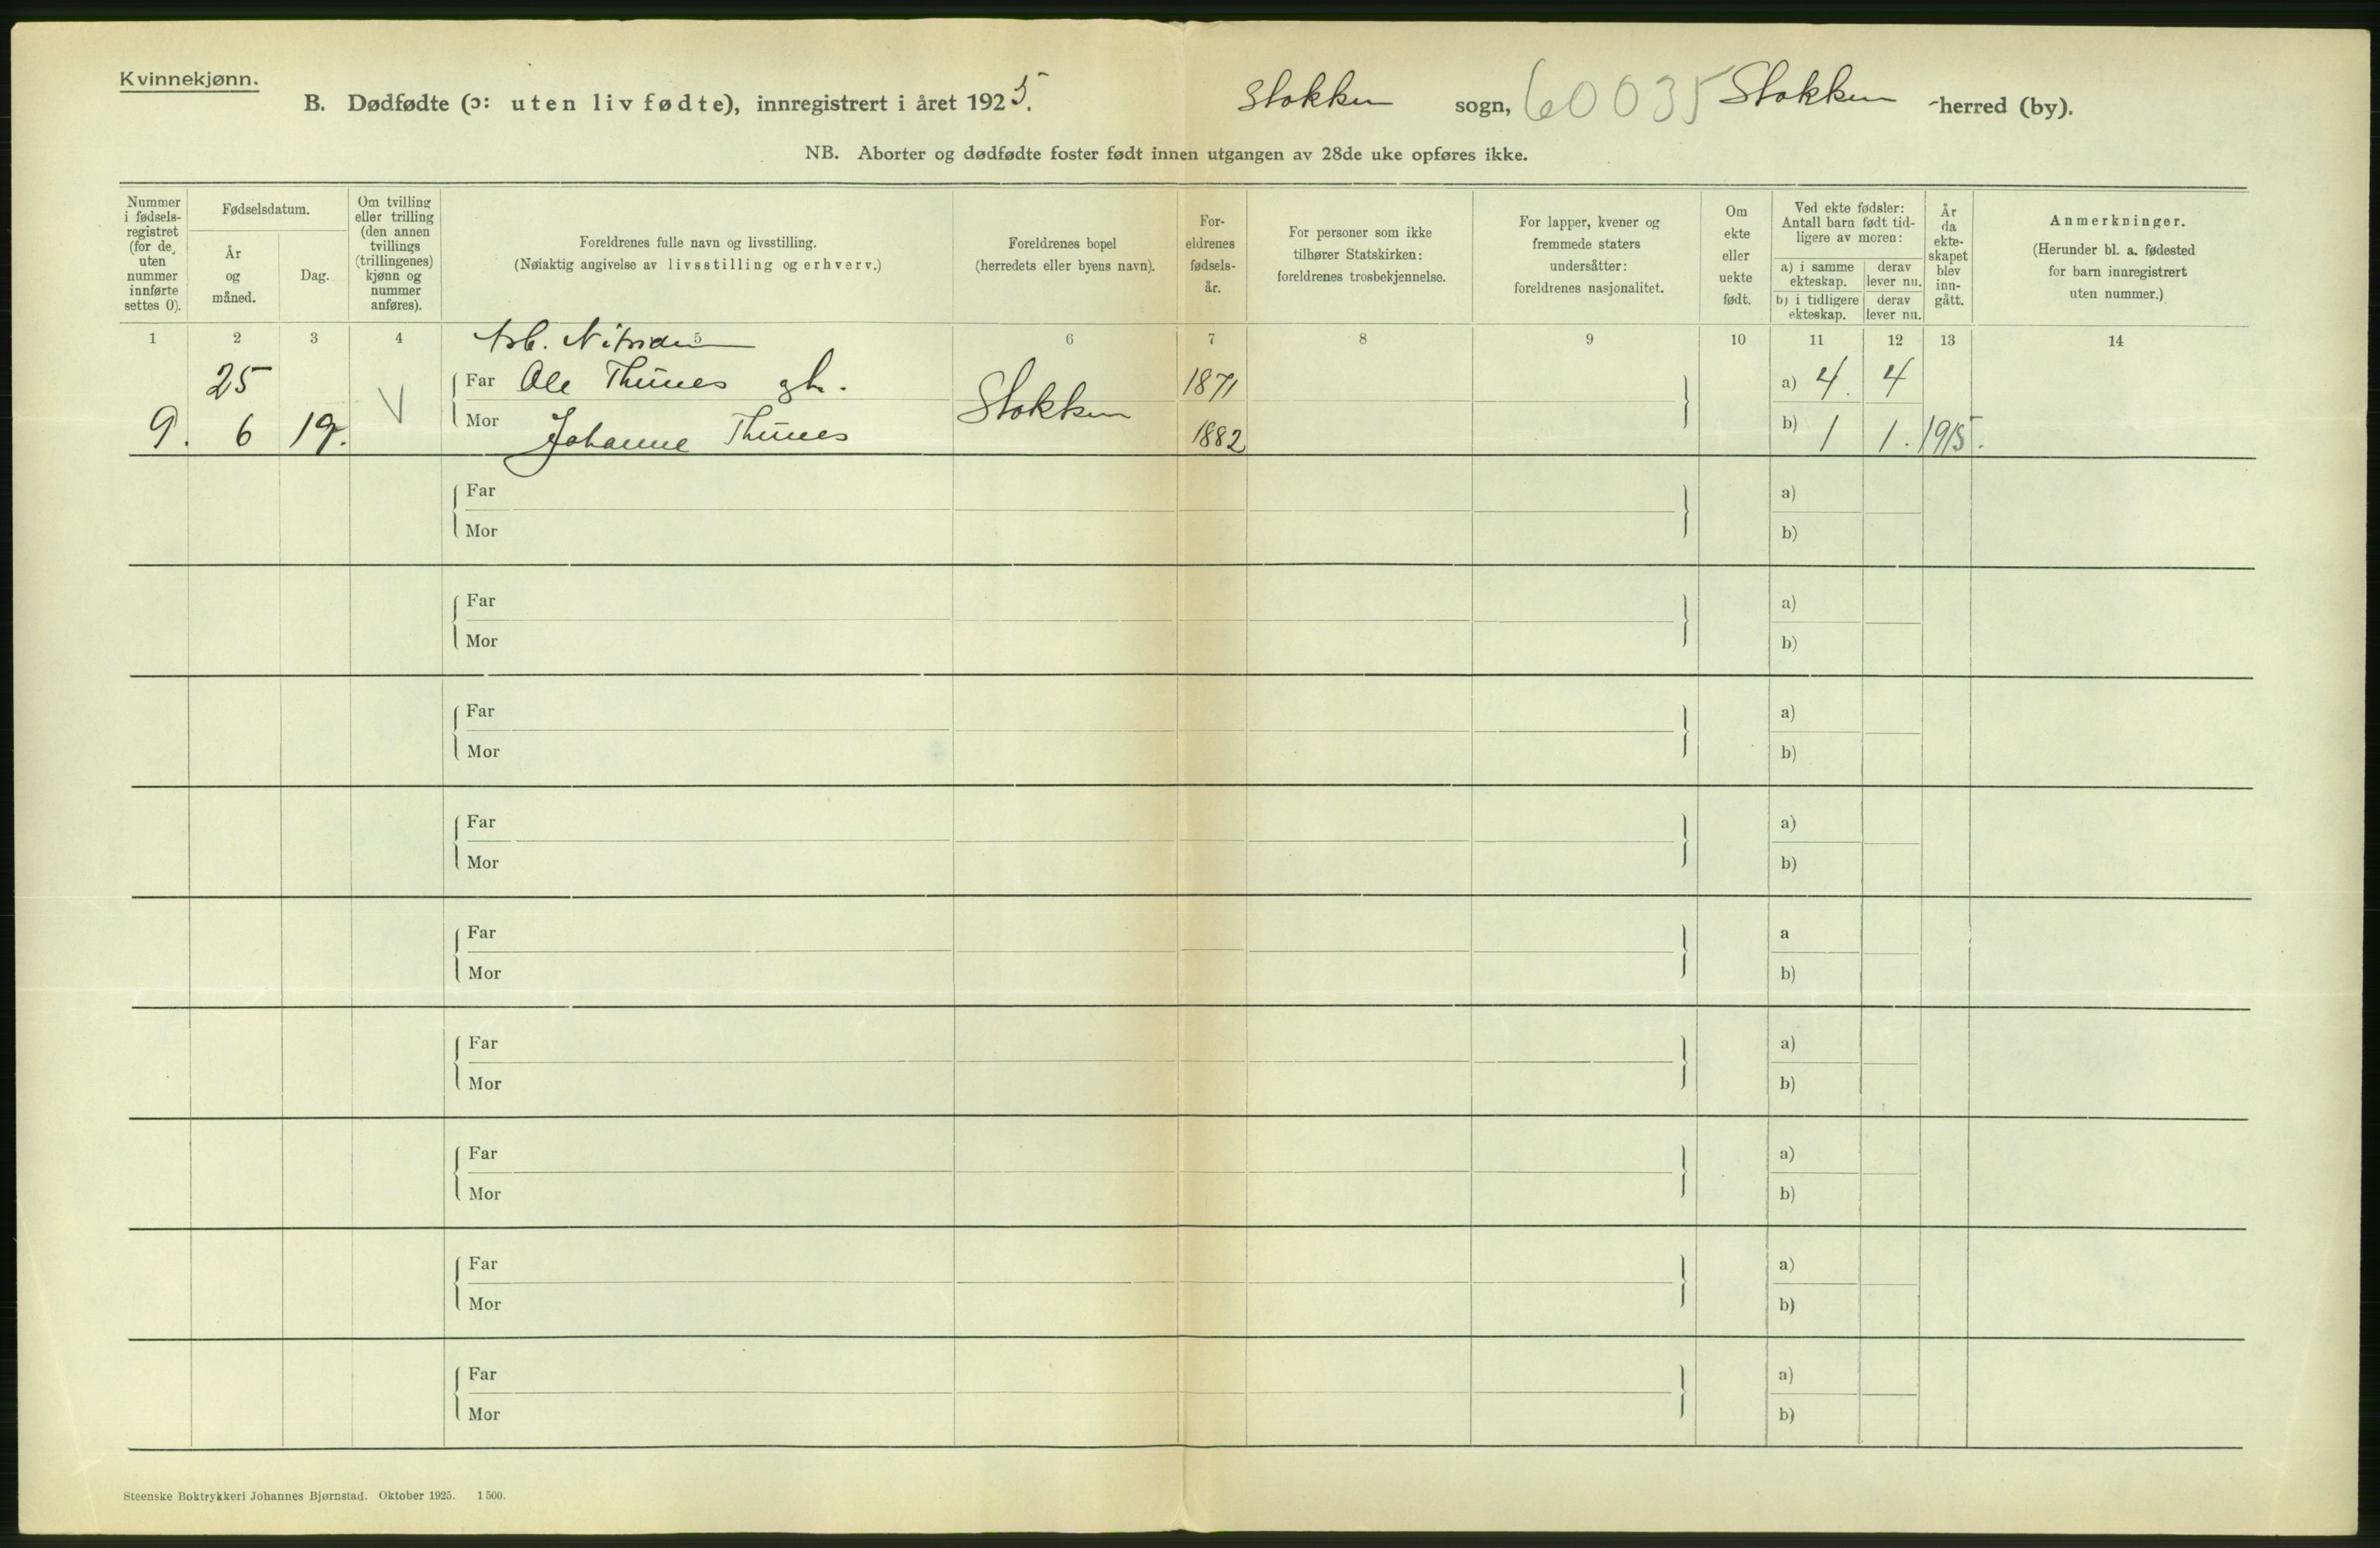 Kvinnekjønn.
B. Dødfødte (ɔ: uten liv fødte), innregistrert i året 1925. Stokken sogn, 60035 Stokken -herred (by).
NB. Aborter og dødfødte foster født innen utgangen av 28de uke opføres ikke.
Nummer i fødsels-registret (for de uten nummer innførte settes 0).
Fødselsdatum.
År og måned.
Dag.
Om tvilling eller trilling (den annen tvillings (trillingenes) kjønn og nummer anføres).
Foreldrenes fulle navn og livsstilling.
(Nøiaktig angivelse av livsstilling og erhverv.)
Foreldrenes bopel
(herredets eller byens navn).
For-eldrenes fødsels-år.
For personer som ikke tilhører Statskirken: foreldrenes trosbekjennelse.
For lapper, kvener og fremmede staters undersåtter: foreldrenes nasjonalitet.
Om ekte eller uekte født.
Ved ekte fødsler: Antall barn født tid-ligere av moren:
a) i samme ekteskap.
derav lever nu.
b) i tidligere ekteskap.
derav lever nu.
År da ekte-skapet blev inn-gått.
Anmerkninger.
(Herunder bl. a. fødested for barn innregistrert uten nummer.)
1 2 3 4 5 6 7 8 9 10 11 12 13 14
Arb. Nitriden
25 Far Ole Thünes gh. 1871 a) 4. 4
9. 6 19. V Mor Johanne Thünes Stokken 1882 b) 1 1. 1915.
Far a)
Mor b)
Far a)
Mor b)
Far a)
Mor b)
Far a)
Mor b)
Far a
Mor b)
Far a)
Mor b)
Far a)
Mor b)
Far a)
Mor b)
Far a)
Mor b)
Steenske Boktrykkeri Johannes Bjørnstad. Oktober 1925. 1500.